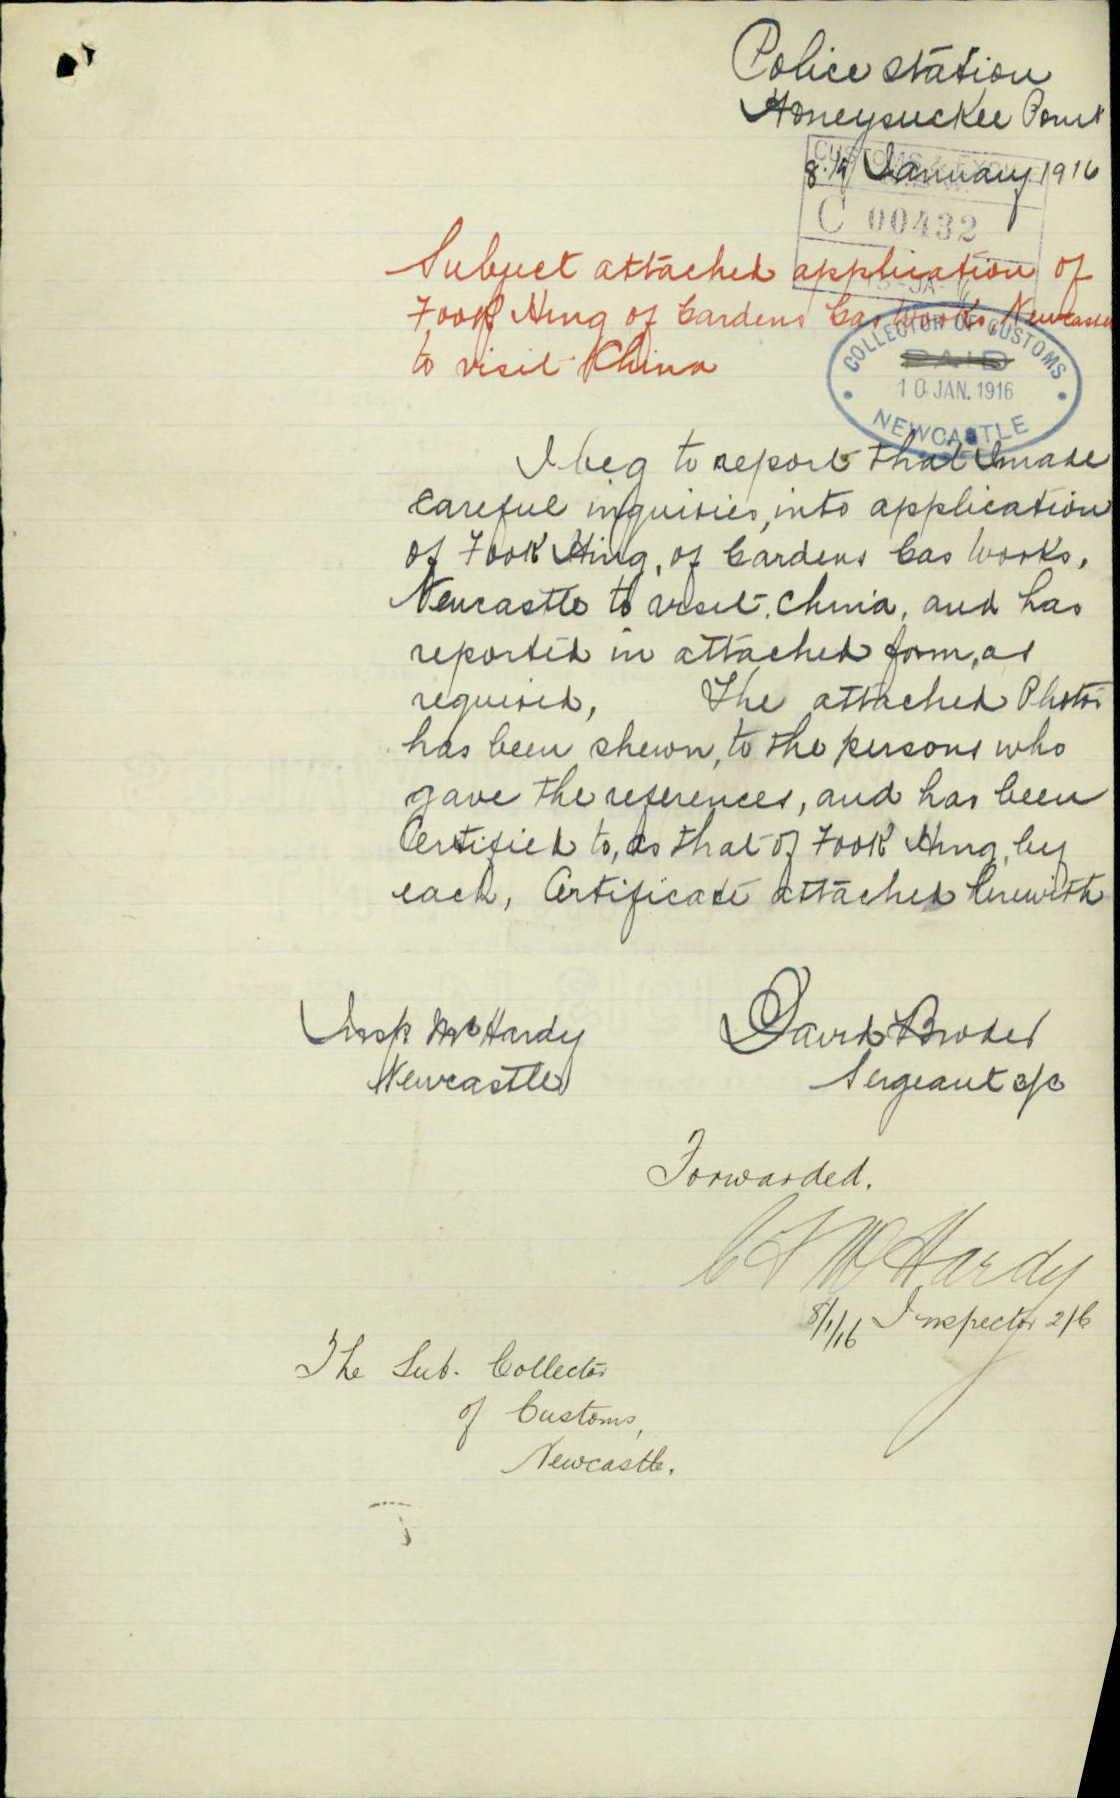 Police station
Honeysuckle Point
8th January 1916
CUSTOMS & EXCISE
C 00432
Subject attached application of
Fook Hing of Gardens Gas Works, Newcastle
to visit China
COLLECTOR OF CUSTOMS
PAID
10 JAN. 1916
NEWCASTLE
I beg to report that I made
careful inquiries, into application
of Fook Hing, of Gardens Gas Works,
Newcastle to visit China, and has
reported in attached form, as
required, The attached Photos
has been shewn, to the persons who
gave the references, and has been
Certified to, as that of Fook Hing, by
each, Certificate attached herewith
David Broder
Sergeant 3/c
Insp McHardy
Newcastle
Forwarded.
McHardy
8/1/16 Inspector 2/C
The Sub. Collector
of Customs,
Newcastle.